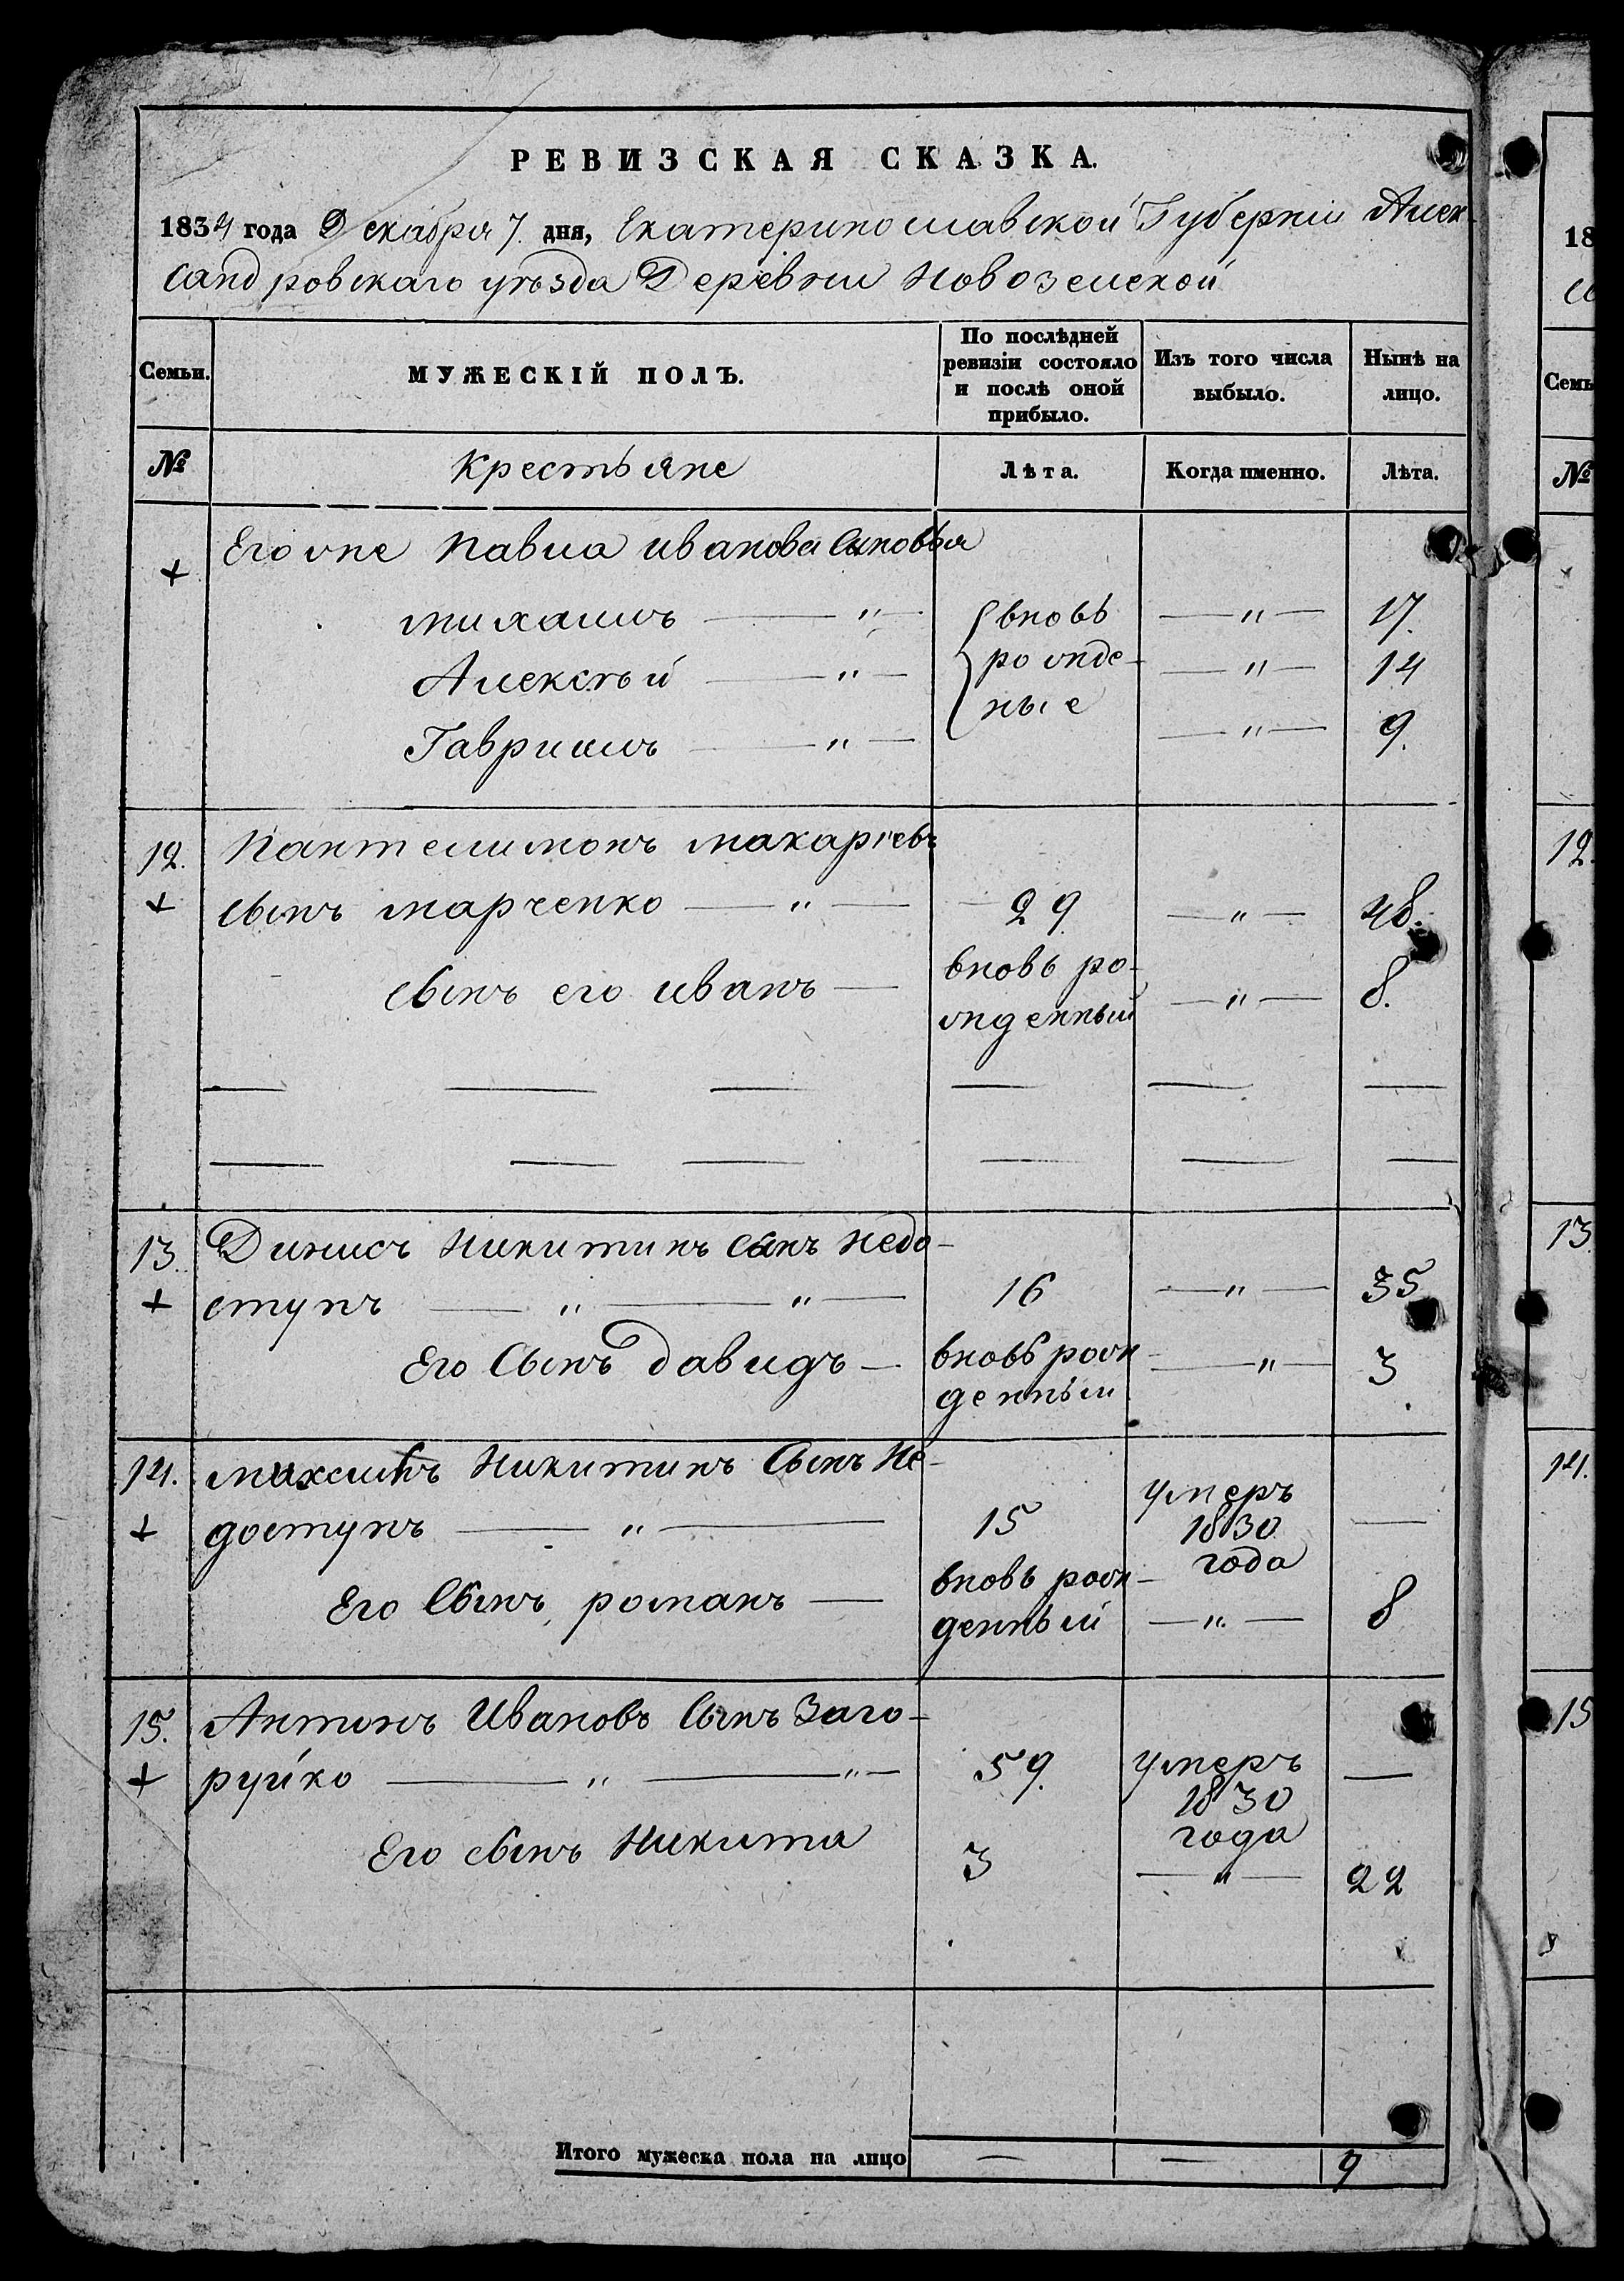 РЕВИЗСКАЯ СКАЗКА.
1834 года Декабря 7. дня, Екатеринославской Губерніи Алек-
сандровскаго уѣзда Деревни Новоземской
Семьи.
МУЖЕСКІЙ ПОЛЪ.
По послѣдней
ревизіи состояло
и послѣ оной
прибыло.
Изъ того числа
выбыло.
Нынѣ на
лицо.
№ Крестьяне Лѣта. Когда именно. Лѣта.
Его же Павла Иванова Сыновья
Михаилъ — " — вновь — " — 17.
Алексѣй — " — рожде- — " — 14
Гавриилъ — " — ные — " — 9.
12. Пантелимонъ Макаріевъ
сынъ Марченко — " — 29 — " — 48.
сынъ его Иванъ — вновь ро-
жденный — " — 8.
13. Динисъ Никитинъ сынъ Недо-
ступъ — " — " — 16 — " — 35
Его Сынъ Давидъ — вновь рож-
денный — " — 3
14. Максимъ Никитинъ Сынъ Не-
доступъ — " — 15 умеръ
1830
года —
Его Сынъ Романъ — вновь рож-
денный — " — 8
15. Антонъ Ивановъ Сынъ Заго-
руйко — " — " — 59. умеръ
1830
года —
Его сынъ Никита 3 — " — 22
Итого мужеска пола на лицо — — 9
18
Семь
№
12.
13.
14.
15